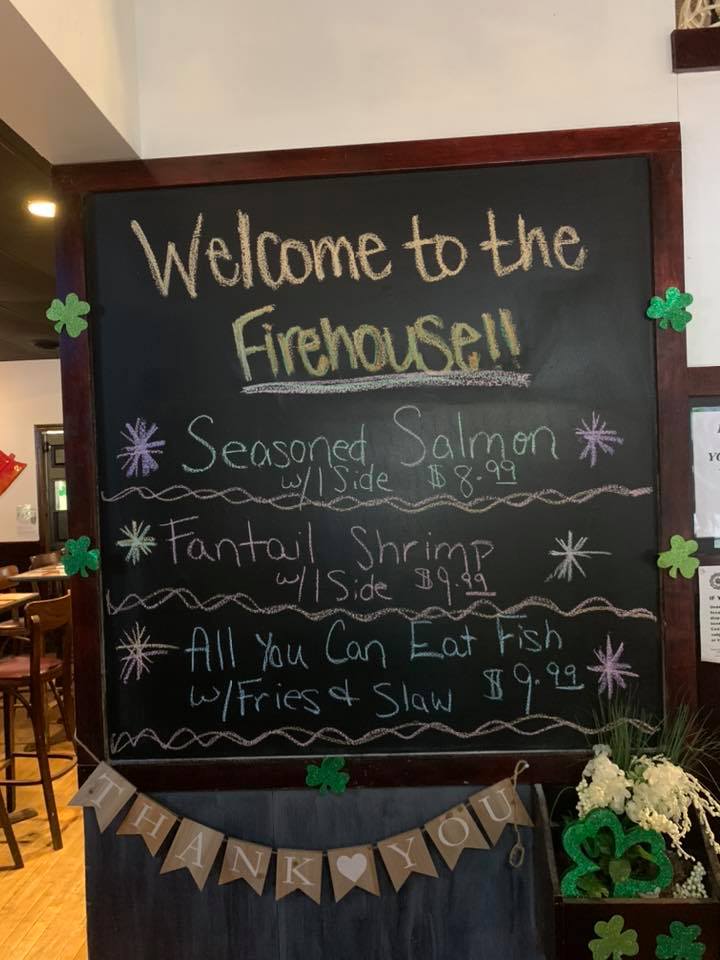 Welcome to the
Firehouse!!
Seasoned Salmon
w/1 Side $8.99
Fantail Shrimp
w/1 Side $9.99
All You Can Eat Fish
w/Fries & Slaw $9.99
THANK YOU